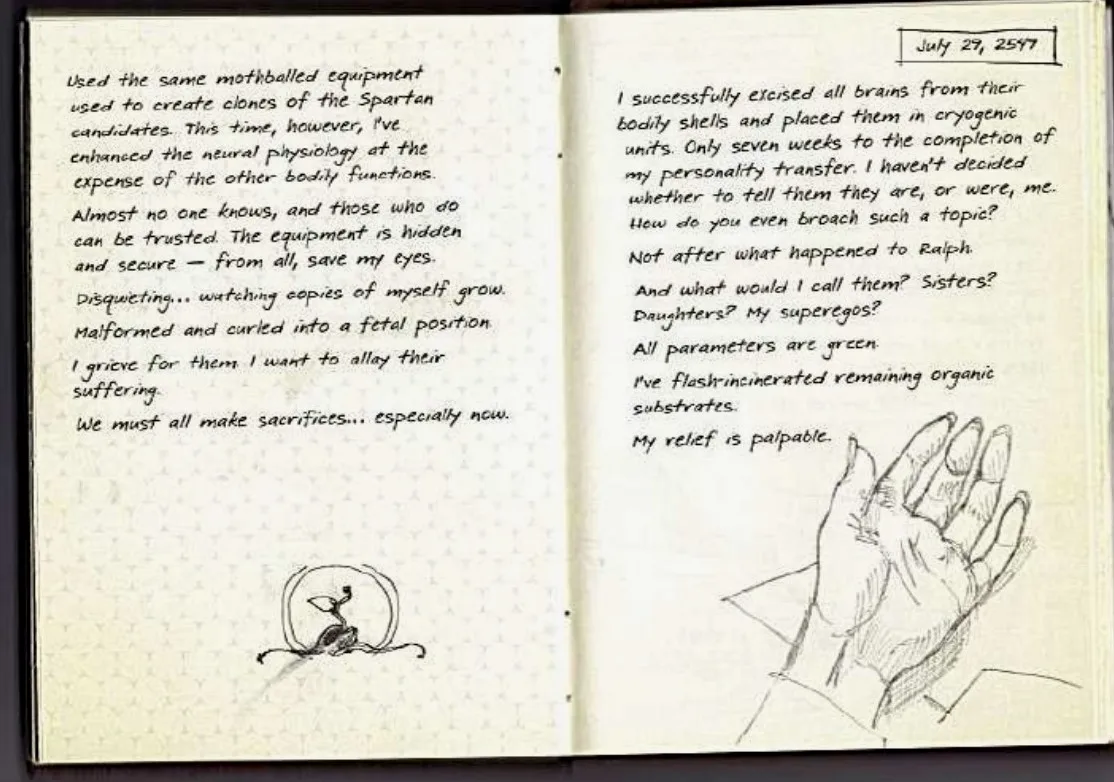 Used the same mothballed equipment
used to create clones of the Spartan
candidates. This time, however, I've
enhanced the neural physiology at the
expense of the other bodily functions.
Almost no one knows, and those who do
can be trusted. The equipment is hidden
and secure — from all, save my eyes.
Disquieting... watching copies of myself grow.
Malformed and curled into a fetal position.
I grieve for them. I want to allay their
suffering.
We must all make sacrifices... especially now.
July 29, 2547
I successfully excised all brains from their
bodily shells and placed them in cryogenic
units. Only seven weeks to the completion of
my personality transfer. I haven't decided
whether to tell them they are, or were, me.
How do you even broach such a topic?
Not after what happened to Ralph.
And what would I call them? Sisters?
Daughters? My superegos?
All parameters are green.
I've flash-incinerated remaining organic
substrates.
My relief is palpable.